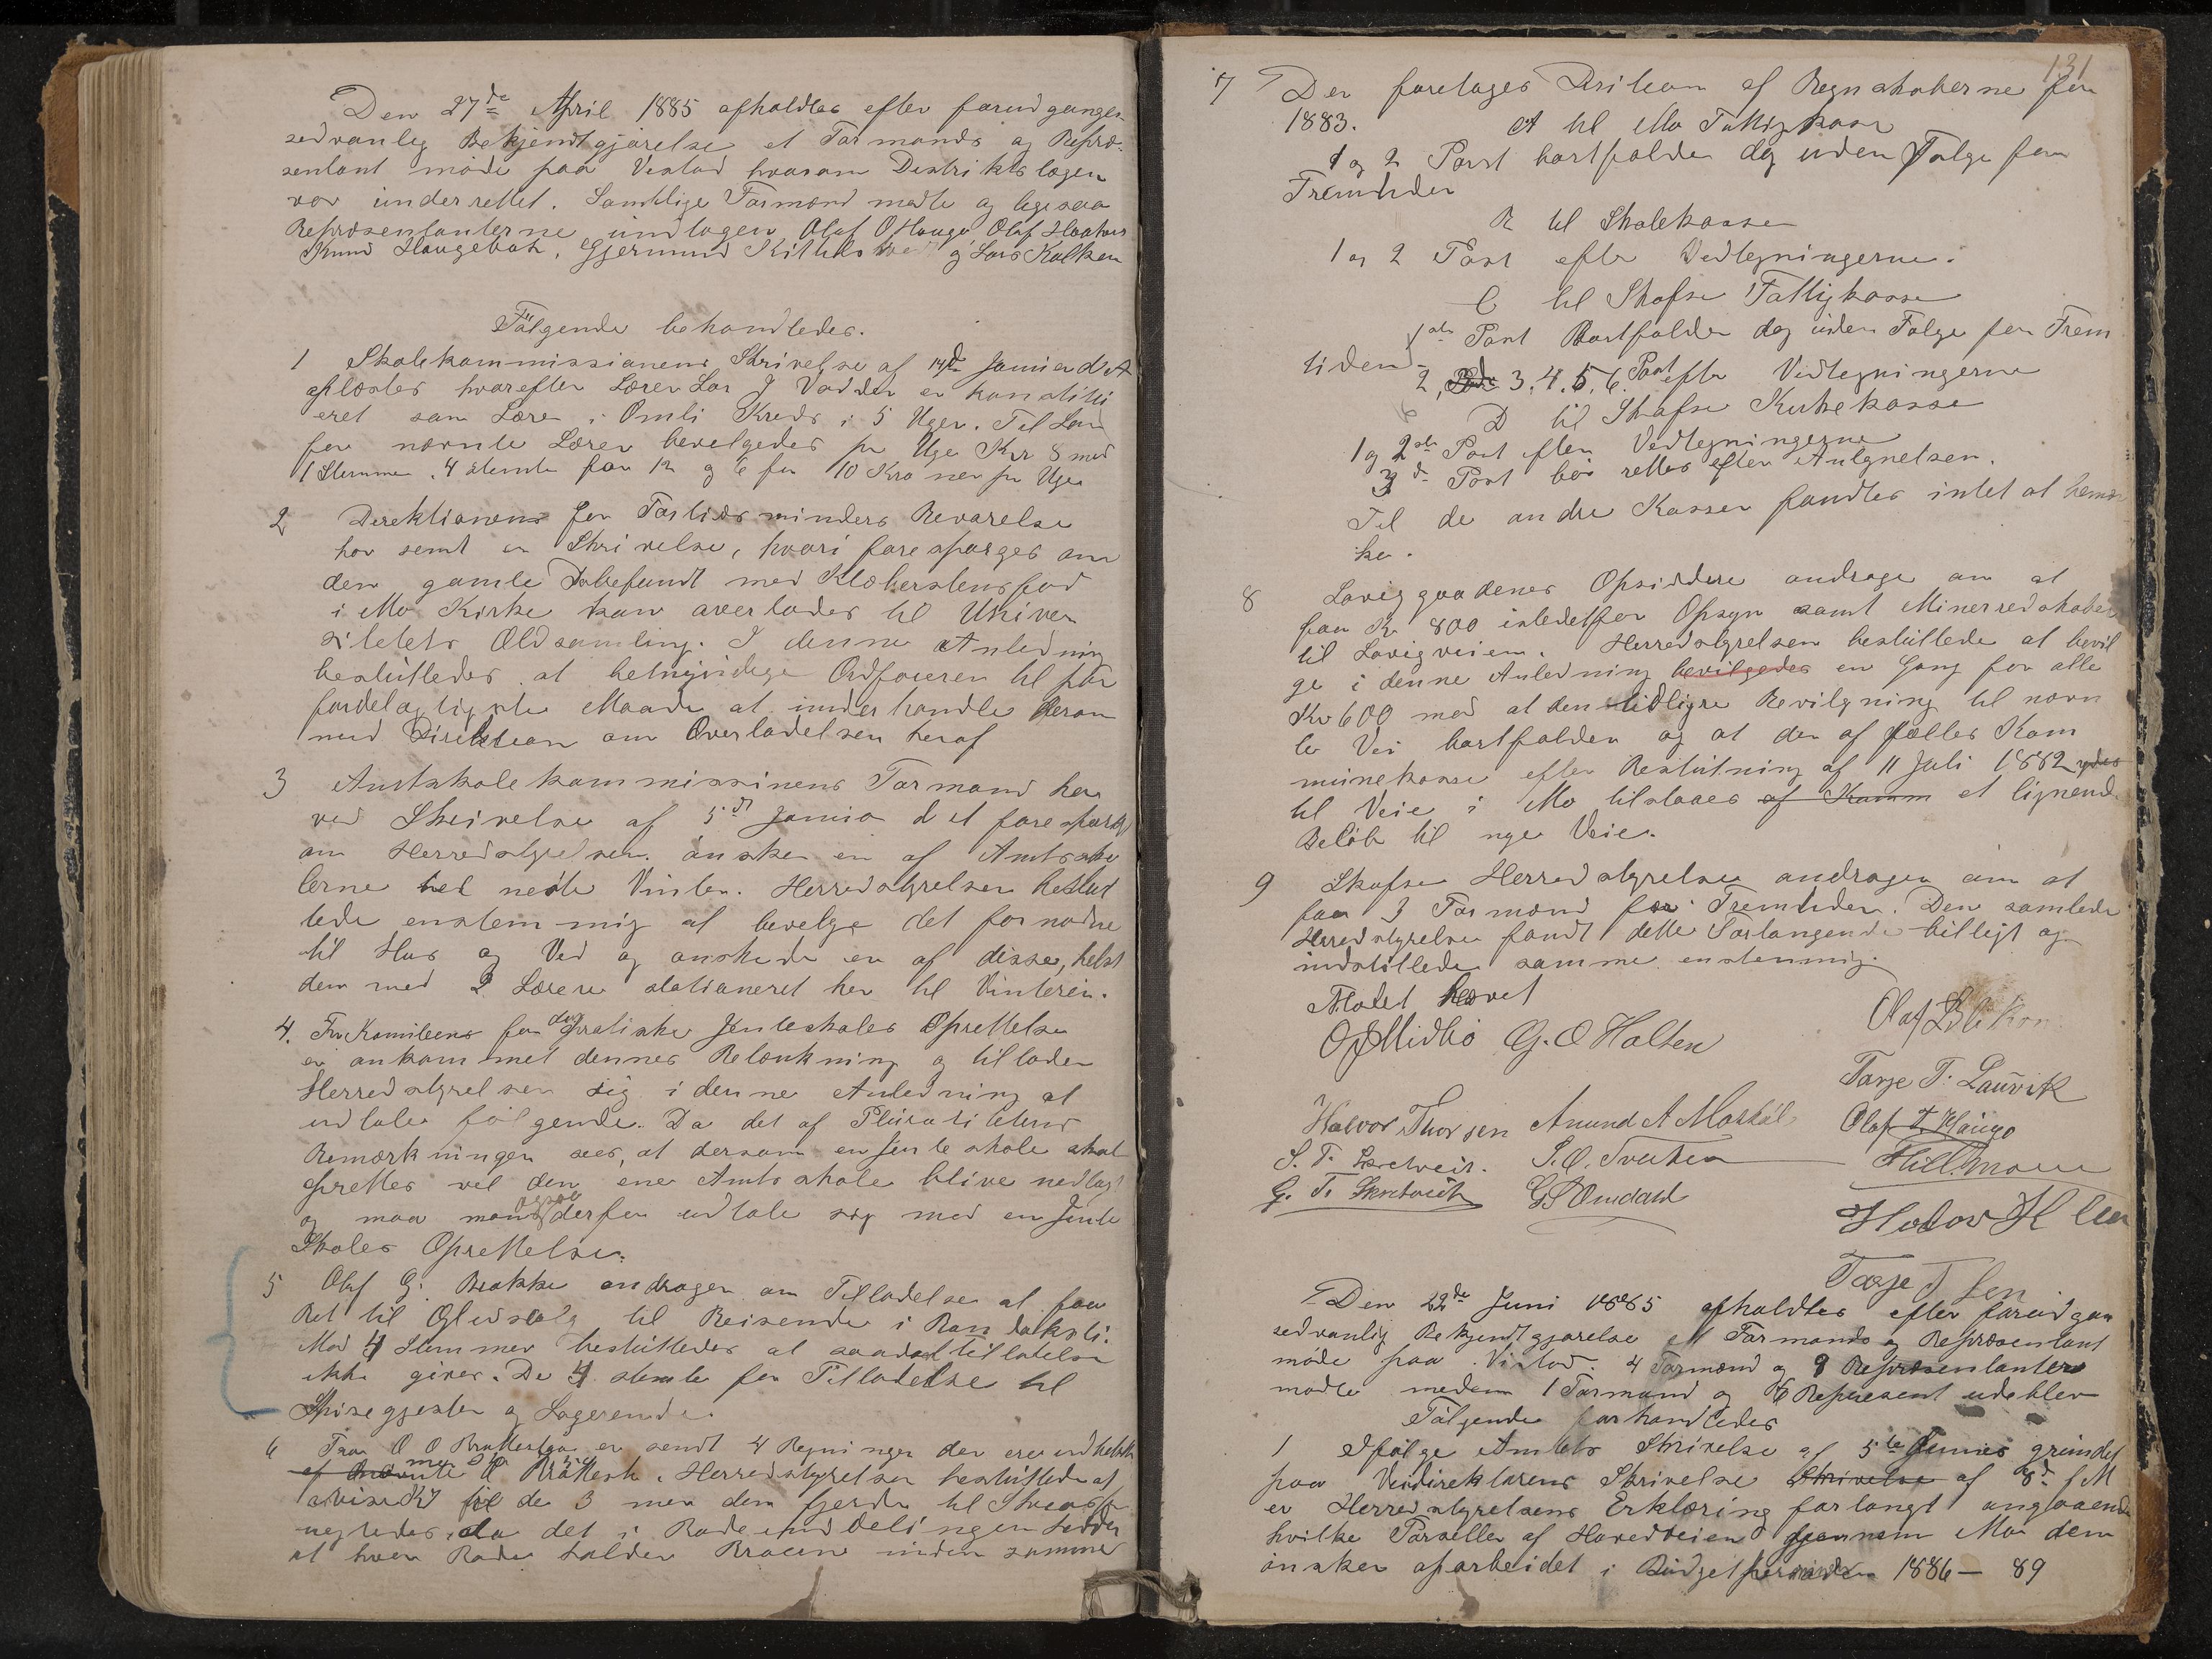 Den 27de April 1885 afholdtes efter forudgangen
sedvanlig Bekjendtgjørelse et Formands og Repræ-
sentant møde paa Vistad hvorom Distriktslægen
var underrettet. Samtlige Formænd mødte og ligesaa
Repræsentanterne undtagen Olaf O Haugo Olaf
Knud Haugebak, Gjermund og Lars Kolken
Følgende behandledes.
1 Skolekommissionens Skrivelse af 14de Janiar d A
oplæstes hvorefter Lærer Lar J Vadder er konstitu
eret som Lærer i Omli Kreds i 5 Uger. Til Løn
for nævnte Lærer bevilgedes pr Uge Kr 8 med
1 Stemme. 4 stemte for 12 og 6 for 10 Kroner pr Uge
2 Direktionen for Fortidsminders Bevarelse
har sendt en Skrivelse, hvori forespørges om
den gamle Døbefundt med Klæberstensfod
i Mo Kirke kan overlades til Univer
sitetets Oldsamling. I denne Anledning
beslutledes at bemyndige Ordføreren til paa
fordelagtigste Maade at underhandle derom
med Direktion om Overladelsen heraf
3 Amtskolekommissinens Formand har
ved Skrivelse af 5te Janiar d A forespørgt
om Herredstyrelsen ønsker en af Amtssko
lerne hid neste Vinter. Herredstyrelsen beslut
tede enstemmig at bevilge det fornødne
til Hus og Ved og ønskede en af disse, helst
den med 2 Lærere stationeret her til Vinteren.
4. Fra Komiteen for den praktiske Jenteskoles Oprettelse
er ankommet dennes Betænkning og tillader
Herredstyrelsen sig i denne Anledning at
udtale følgende. Da det af Pluralitetens
Bemærkninger sees, at dersom en Jenteskole skal
oprettes vil den ene Amtsskole blive nedlagt
og maa man derfor udtale sig mod en Jente
Skoles Oprettelse.
5 Olaf G. Brokke andrager om Tilladelse at faa
Ret til Øludsalg til Reisende i
Mod 4 Stemmer beslutledes at saadan tilladelse
ikke gives. De 4 stemte for Tilladelse til
Spisegjester og Logerende.
6 Fra O O er sendt 4 Regninger der ere
Herredstyrelsen besluttede at
de 3 men den fjerde til
negtedes, da det i Rodeinddelingen
at hver Rode holder Broerne inden samme
131
7 Der foretages Desition af Regnskaberne for
1883. A til Mo Fattigkasse
1 og 2 Post bortfalder dog uden Følge for
Fremtiden
B til Skolekassen
1 og 2 Post efter Vedtegningerne.
C til Skafse Fattigkasse
1ste Post Bortfalder dog uden Følge for Frem
tiden
2, Post 3. 4. 5. 6. Post efter Vedtegningerne
D til Skafse Kirkekasse
1 og 2den Post efter Vedtegningerne
3de Post bør rettes efter Antegnelsen.
Til de andre Kasser fandtes intet at bemær
ke.
8 Løviggaardenes Opsiddere andrage om at
faa Kr 800 istedetfor Opsyn samt Minerredskaber
til Løvigveien. Herredstyrelsen besluttede at bevil
ge i denne Anledning bevilgedes en Gang for alle
Kr 600 mod at den tidligre Bevilgning til nævn
te Vei bortfalder og at der af fælles Kom
munekasse efter Beslutning af 11 Juli 1882 ydes
til Veie i Mo tilstaaes af Komm et lignende
Beløb til nye Veie.
9 Skafse Herredstyrelse andrager om at
faa 3 Formænd for Fremtiden. Den samlede
Herredstyrelse fandt dette Forlangende billigt og
indstillede samme enstemmig.
Mødet hævet
O J Midbø G. O Holten Olaf
Tarje T. Lauvik
Halvor Thorsen Anund A Olaf T. Haugo
S. T. S. O.
G. T. G Omdahl
Halvor H
Tarje T
Den 22de Juni 1885 afholdtes efter forudgaa
sedvanlig Bekjendtgjørelse et Formands og Repræsentant
møde paa Vistad. 4 Formænd og 8 Repræsentanter
mødte medens 1 Formand og 6 Represent udeblev
Følgende forhandledes
1 Ifølge Amtets Skrivelse af 5te Junies grundet
paa Veidirektørens Skrivelse Skrivelse af 3d f M
er Herredstyrelsens Erklæring forlangt angaaende
hvilke Parseller af Hovedveien gjennem Mo den
ønsker oparbeidet i Budgetperioden 1886 — 89